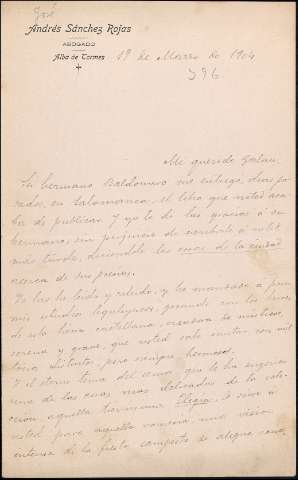 José
Andrés Sánchez Rojas
ABOGADO
Alba de Tormes
19 de Marzo de 1904
396
Mi querido Galán:
Su hermano Baldomero me entregó, días pa-
sados, en Salamanca, el libro que usted aca-
ba de publicar y yo le di las gracias a su
hermano, sin perjuicio de escribirle a usted
más tarde, diciéndole las cosas de la ciudad
acerca de sus poesías.
Yo las he leído y releído, y he mandado a paseo
mis estudios leguleyescos, gozando con los
de esta tierra castellana, creadora de místicos,
serena y grave, que usted sabe cantar con mil
tonos distintos, pero siempre hermosos.
Y el eterno tema del amor, que le ha sugerido
una de las cosas más delicadas de la
colección aquella ternísima Elegía, le sirve a
usted para aquella una visión
intensa de la fiesta campestre de alegre